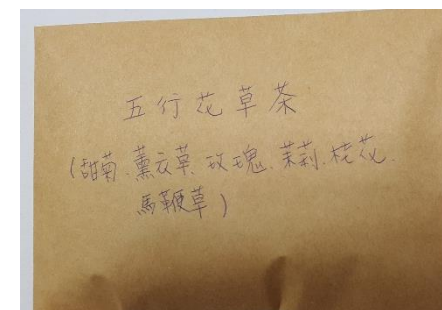 五行花草茶
(甜菊.薰衣草.玫瑰.茉莉.桂花.
馬鞭草)